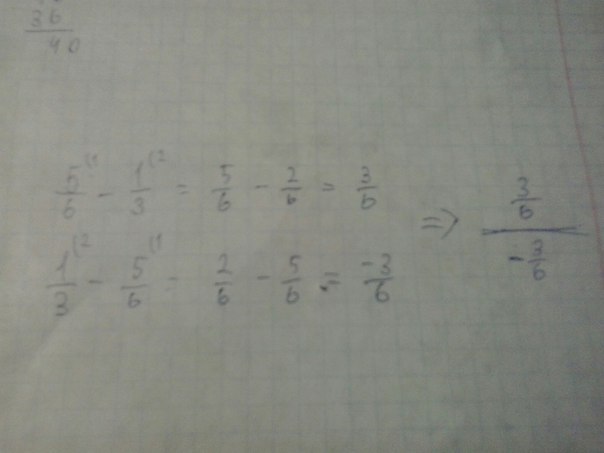 36
40
5/6 (1 - 1/3 (2 = 5/6 - 2/6 = 3/6
1/3 (2 - 5/6 (1 = 2/6 - 5/6 = -3/6
=> 3/6 / -3/6